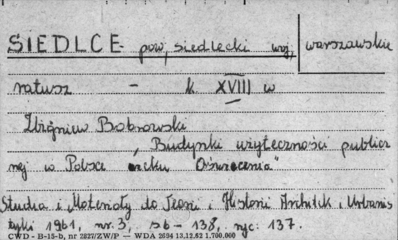 SIEDLCE - pow. siedlecki woj. warszawskie
ratusz - k. XVIII w
Zbigniew Bobrowski
"Budynki użyteczności publicz
nej w Polsce wieku Oświecenia"
Studia i Materiały do Teorii i Historii Archit. i Urbanis
tyki 1961, nr. 3, s 6 - 138, ryc. 137.
CWD - B-15-b, nr 2827/ZW/P — WDA 2694 13.12.62 1.700.000